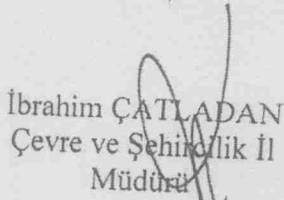 İbrahim ÇATLADAN
Çevre ve Şehircilik İl
Müdürü